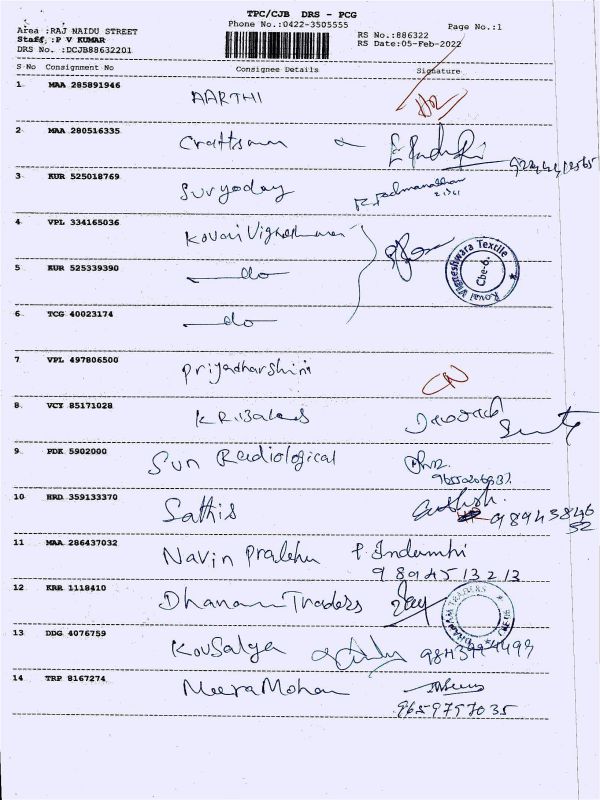 TPC/CJB DRS - PCG
Phone No.:0422-3505555
Page No.:1
Area :RAJ NAIDU STREET
Staff :P V KUMAR
DRS No. :DCJB88632201
RS No.:886322
RS Date:05-Feb-2022
S No Consignment No Consignee Details Signature
1 MAA 285891946 AARTHI
2 MAA 280516335 Craftsman
3 KUR 525018769 Suryoday R. Padmanathan
4 VPL 334165036 Kovai Vigneshwara
Kovai Vigneshwara Textile
Cbe-6.
5 KUR 525339390 do
6 TCG 40023174 do
7 VPL 497806500 Priyadharshini
8 VCY 85171028 K R Balans
9 PDK 5902000 Sun Radiological
10 HRD 359133370 Sathis Sathish.
98943846
52
11 MAA 286437032 Navin Prabhu P. Indumthi
9894513213
12 KRR 1118410 Dhanam Traders
DHANAM TRADERS
13 DDG 4076759 Kousalya 9843994497
14 TRP 8167274 Meera Mohan
9659797035